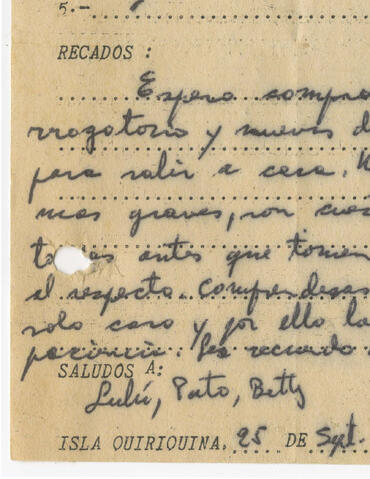 5.-
RECADOS :
Espero compro
rrogatorio y nuevas d
para salir a casa.
mas graves, son
antes que tomen
al respecto. Comprendas
solo caso y por ello la
paciencia. Les recuerdo
SALUDOS A:
Lulú, Pato, Betty
ISLA QUIRIQUINA, 25 DE Sept.